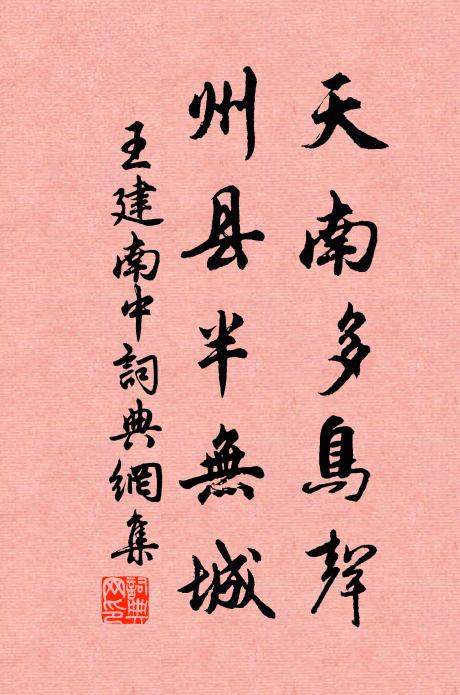 天南多鳥聲
州县半無城
王建南中詞典網集
詞典
网印